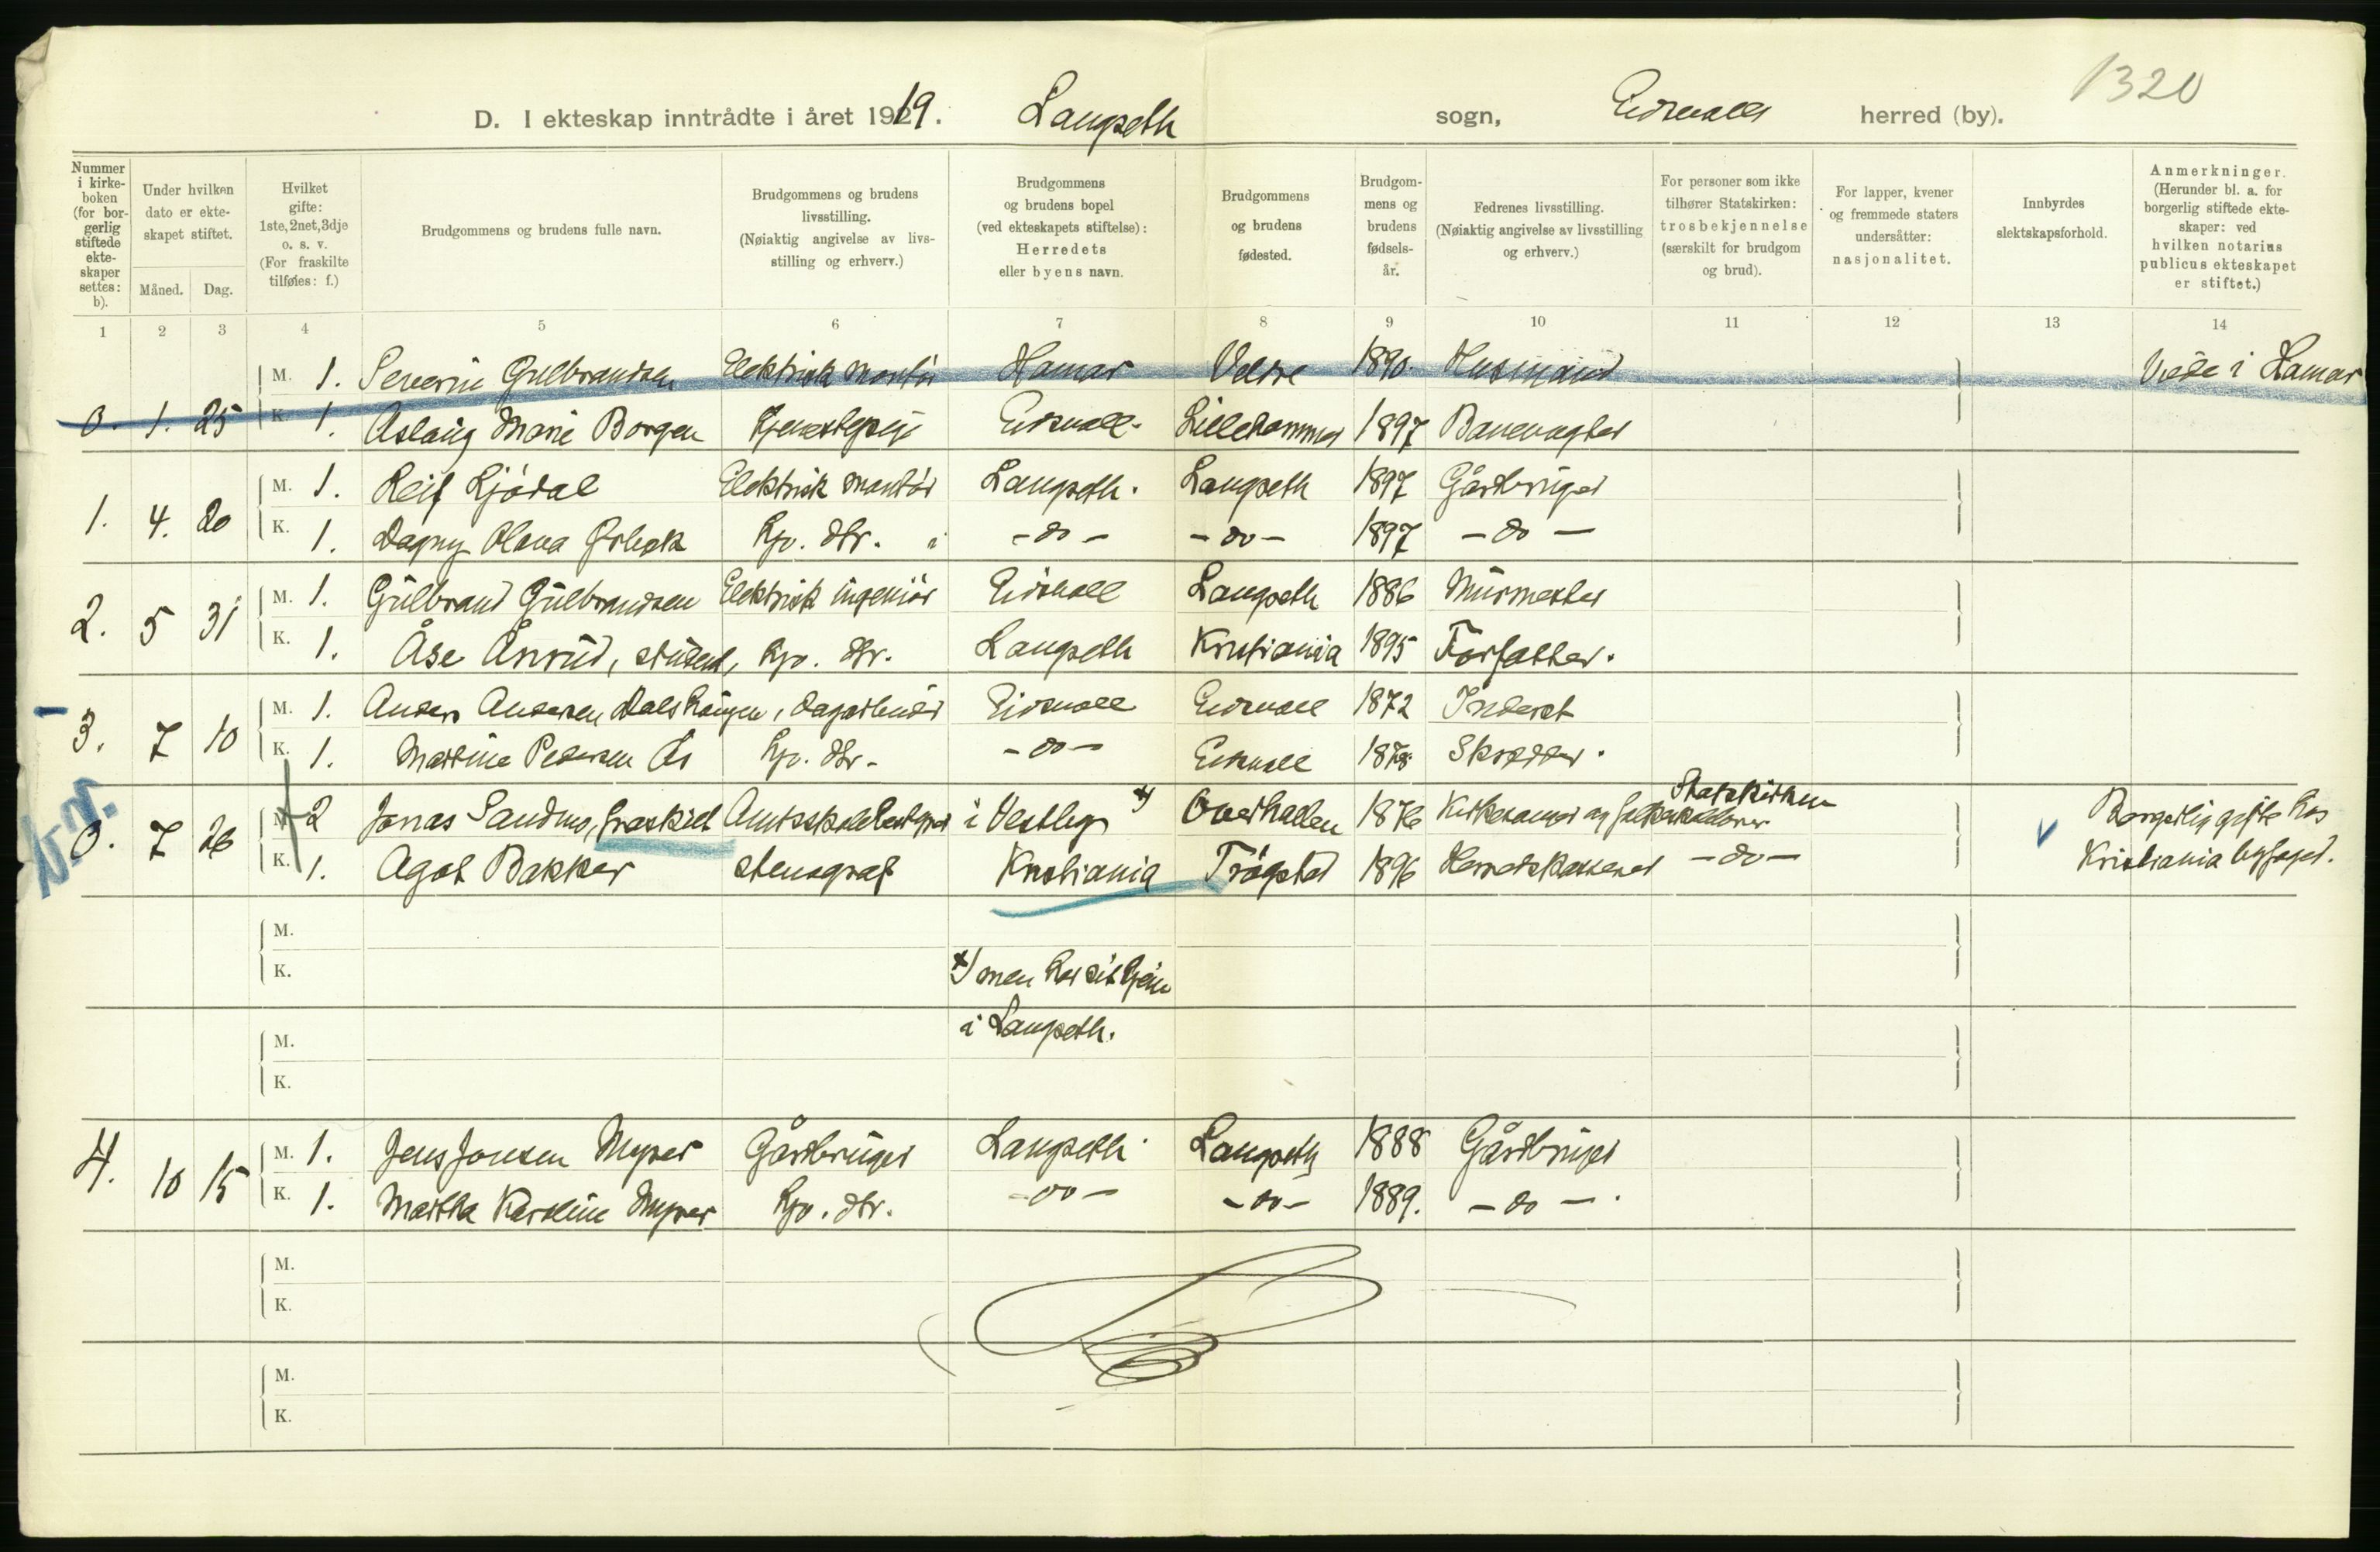 1320
D. I ekteskap inntrådte i året 19219. Langseth sogn, Eidsvoll herred (by).
Nummer i kirkeboken (for borgerlig stiftede ekteskaper settes: b).
Under hvilken dato er ekteskapet stiftet.
Måned. Dag.
Hvilket gifte: 1ste, 2net, 3dje o. s. v. (For fraskilte tilføies: f.)
Brudgommens og brudens fulle navn.
Brudgommens og brudens livsstilling. (Nøiaktig angivelse av livsstilling og erhverv.)
Brudgommens og brudens bopel (ved ekteskapets stiftelse): Herredets eller byens navn.
Brudgommens og brudens fødested.
Brudgommens og brudens fødselsår.
Fedrenes livsstilling. (Nøiaktig angivelse av livsstilling og erhverv.)
For personer som ikke tilhører Statskirken: trosbekjennelse (særskilt for brudgom og brud).
For lapper, kvener og fremmede staters undersåtter: nasjonalitet.
Innbyrdes slektskapsforhold.
Anmerkninger. (Herunder bl. a. for borgerlig stiftede ekteskaper: ved hvilken notarius publicus ekteskapet er stiftet.)
1 2 3 4 5 6 7 8 9 10 11 12 13 14
M. 1. Severin Gulbrandsen Elektrisk montör Hamar Veldre 1890. Husmand Viede i Hamar
0. 1. 25 K. 1. Aslaug Marie Borgen Eidsvoll. Lillehammer 1897 Banevagter
M. 1. Leif Ljödal Elektrisk montör Langseth. Langseth 1897 Gårdbruger
1. 4. 20 K. 1. Dagny Olava Ørbæk Hjv. dtr. - do - - do - 1897 - do -
M. 1. Gulbrand Gulbrandsen Elektrisk ingeniör Eidsvoll Langseth 1886 Murmester
2. 5 31 K. 1. Åse Ånrud, student, Hjv. dtr. Langseth Kristiania 1895 Forfatter.
M. 1. Anders Andersen Dalshaugen, dagarbeider Eidsvoll Eidsvoll 1872 Inderst
3. 7 10 K. 1. Martine Pedersen Ås Hjv. dtr. - do - Eidsvoll 1878. Skrædder.
M. 2 Jonas Sandmo, fraskilt Amtsskolebestyrer i Vestby x) Overhallen 1876 Kirkesanger og Statskirken
0. 7 26 K. 1. Agot Bakker stenograf Kristiania Trögstad 1896 Herredskasserer - do -
Borgerlig gifte hos
Kristiania byfoged.
M.
K.
x) men har sit hjem
i Langseth.
M.
K.
M. 1. Jens Jonsen Myrer Gårdbruger Langseth Langseth 1888 Gårdbruger
4. 10 15 K. 1. Martha Karoline Myrer Hjv. dtr. - do - - do - 1889. - do - .
M.
K.
M.
K.